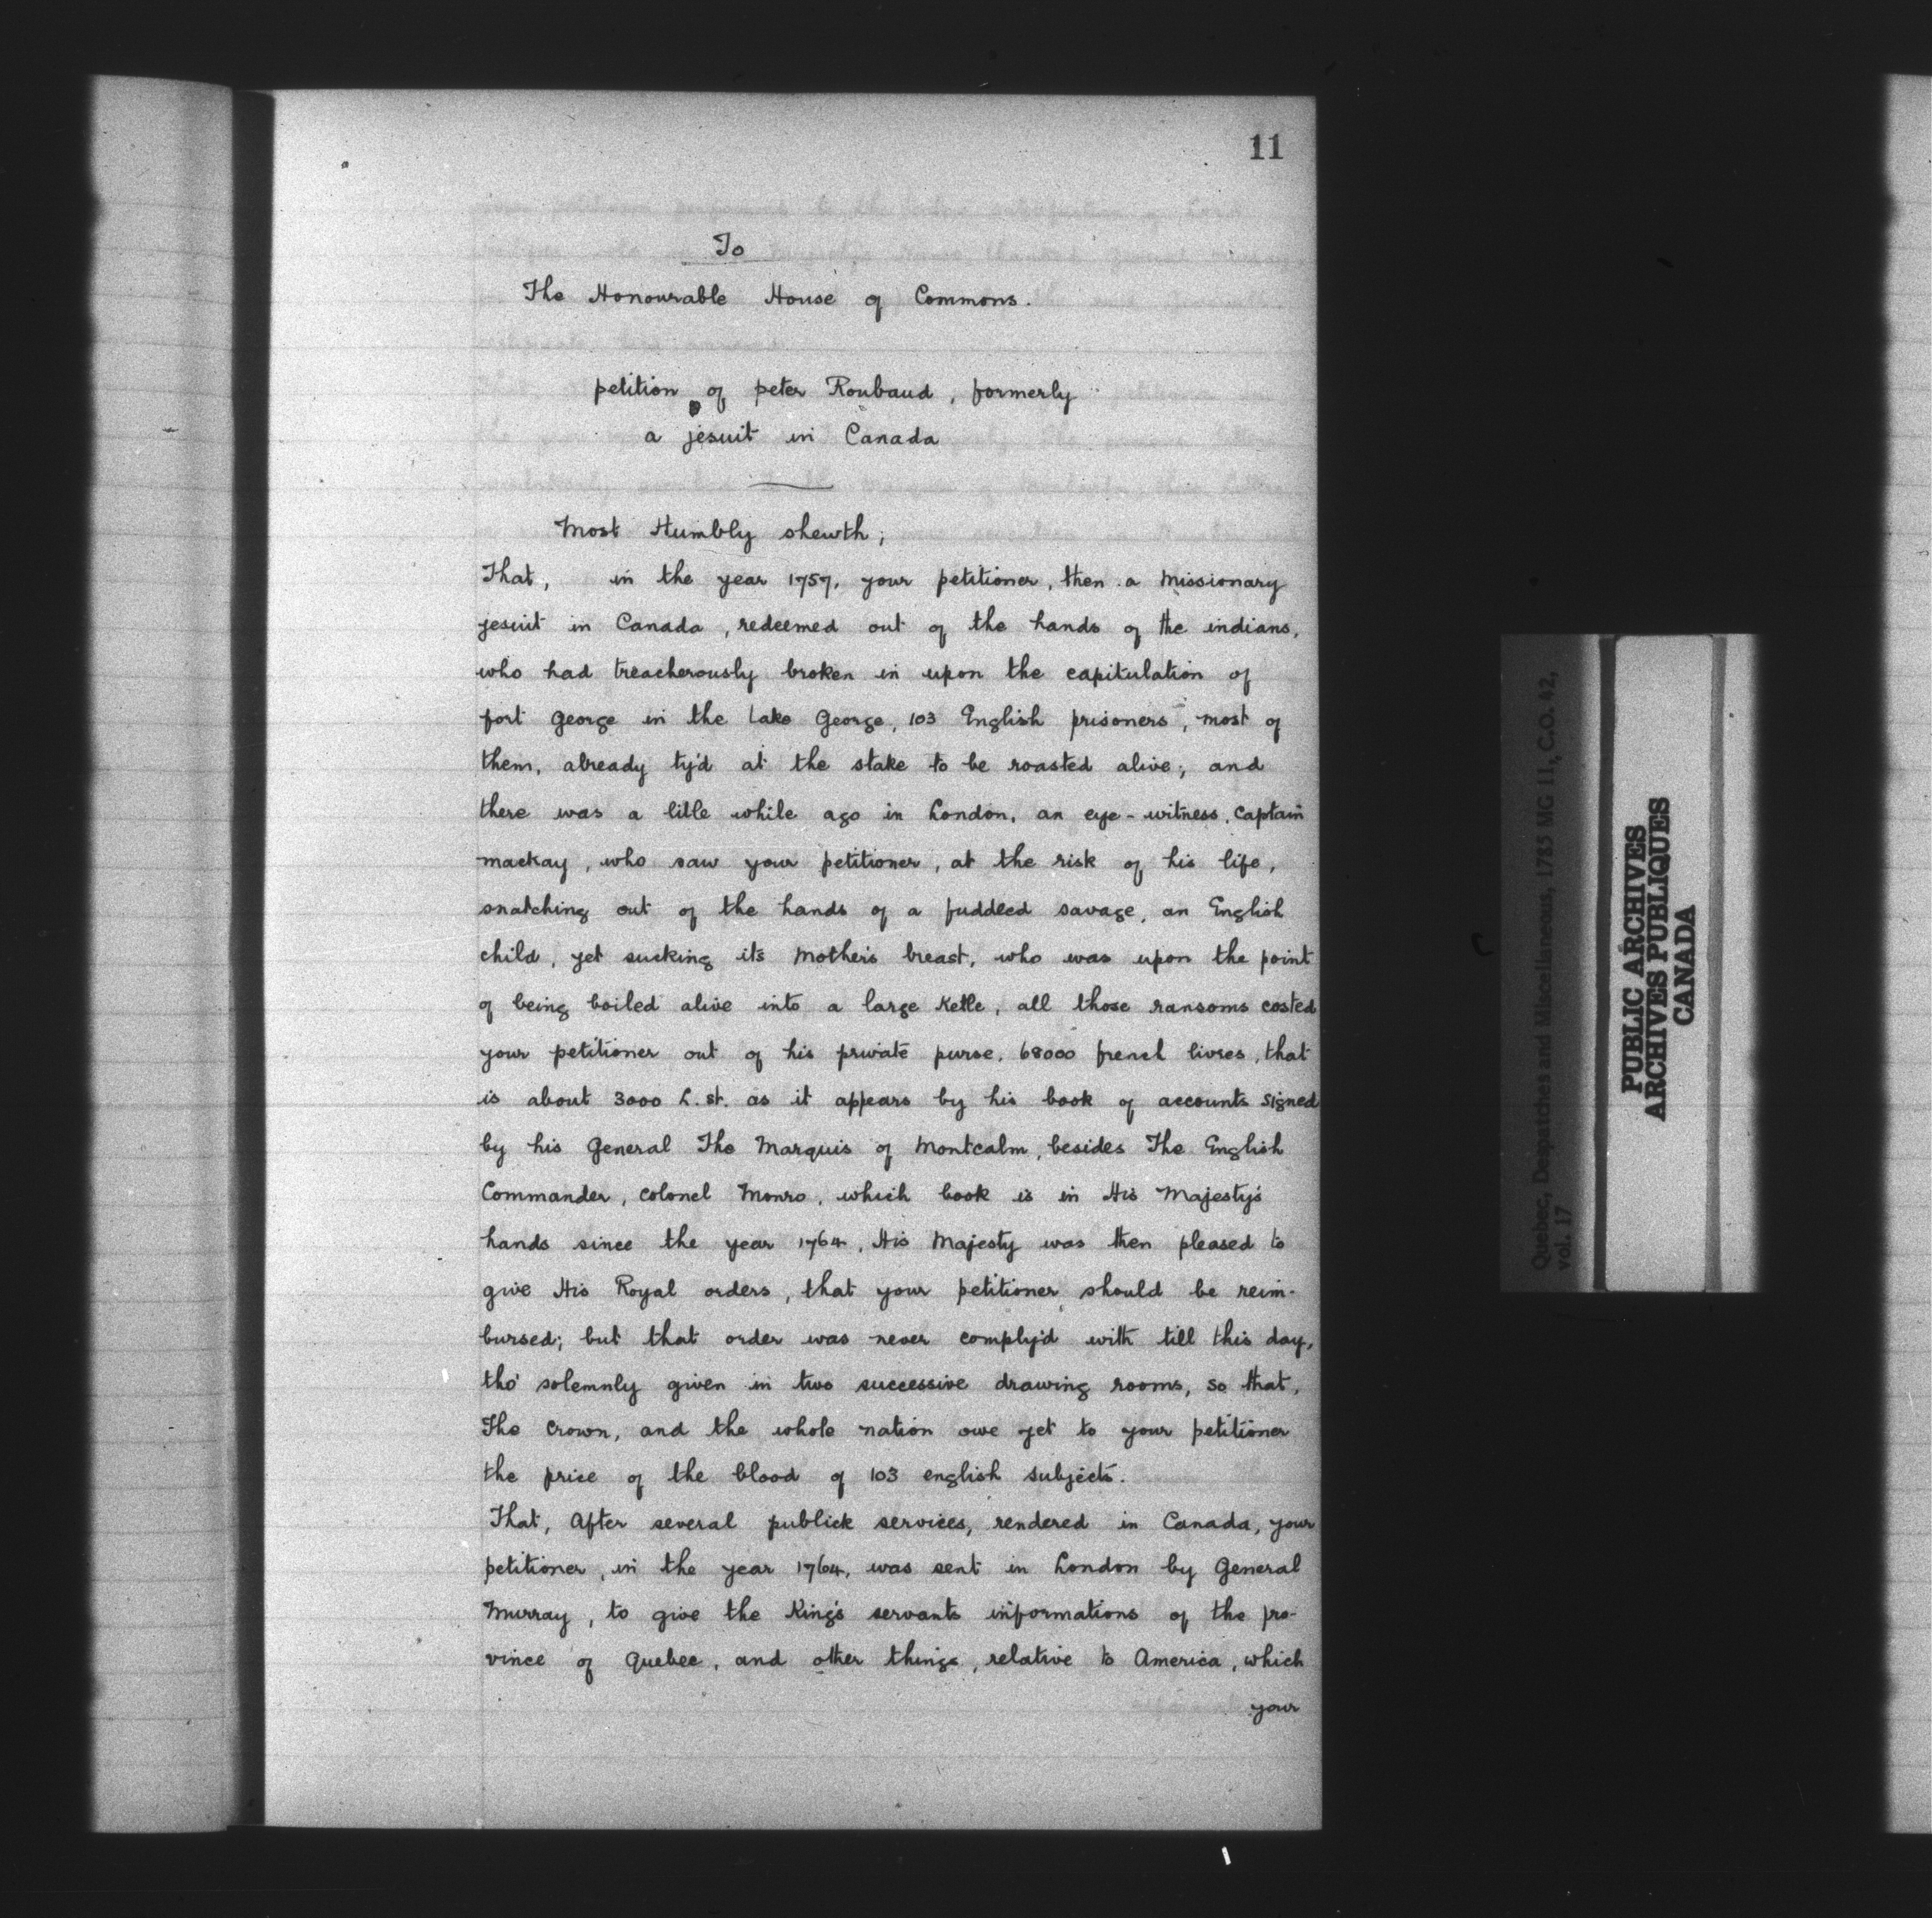 11
To
The Honourable House of Commons.
petition of peter Roubaud, formerly
a jesuit in Canada
Most Humbly shewth;
That, in the year 1757, your petitioner, then a Missionary
jesuit in Canada, redeemed out of the hands of the indians,
who had treacherously broken in upon the capitulation of
fort George in the Lake George, 103 English prisoners, most of
them, already ty'd at the stake to be roasted alive; and
there was a little while ago in London, an eye-witness, Captain
mackay, who saw your petitioner, at the risk of his life,
snatching out of the hands of a fuddled savage, an English
child, yet sucking its Mother's breast, who was upon the point
of being boiled alive into a large Kettle, all those ransoms costed
your petitioner out of his private purse, 68000 french livres, that
is about 3000 L. st. as it appears by his book of accounts signed
by his General The Marquis of Montcalm, besides The English
Commander, Colonel Monro, which book is in His Majesty's
hands since the year 1764, His Majesty was then pleased to
give His Royal orders, that your petitioner should be reim-
bursed; but that order was never comply'd with till this day,
tho' solemnly given in two successive drawing rooms, so that,
The Crown, and the whole nation owe yet to your petitioner
the price of the blood of 103 english subjects.
That, After several publick services, rendered in Canada, your
petitioner, in the year 1764, was sent in London by General
Murray, to give the King's servants informations of the pro-
vince of Quebec, and other things, relative to America, which
your
Quebec, Despatches and Miscellaneous, 1785 MG 11, C.O. 42,
vol. 17
PUBLIC ARCHIVES
ARCHIVES PUBLIQUES
CANADA